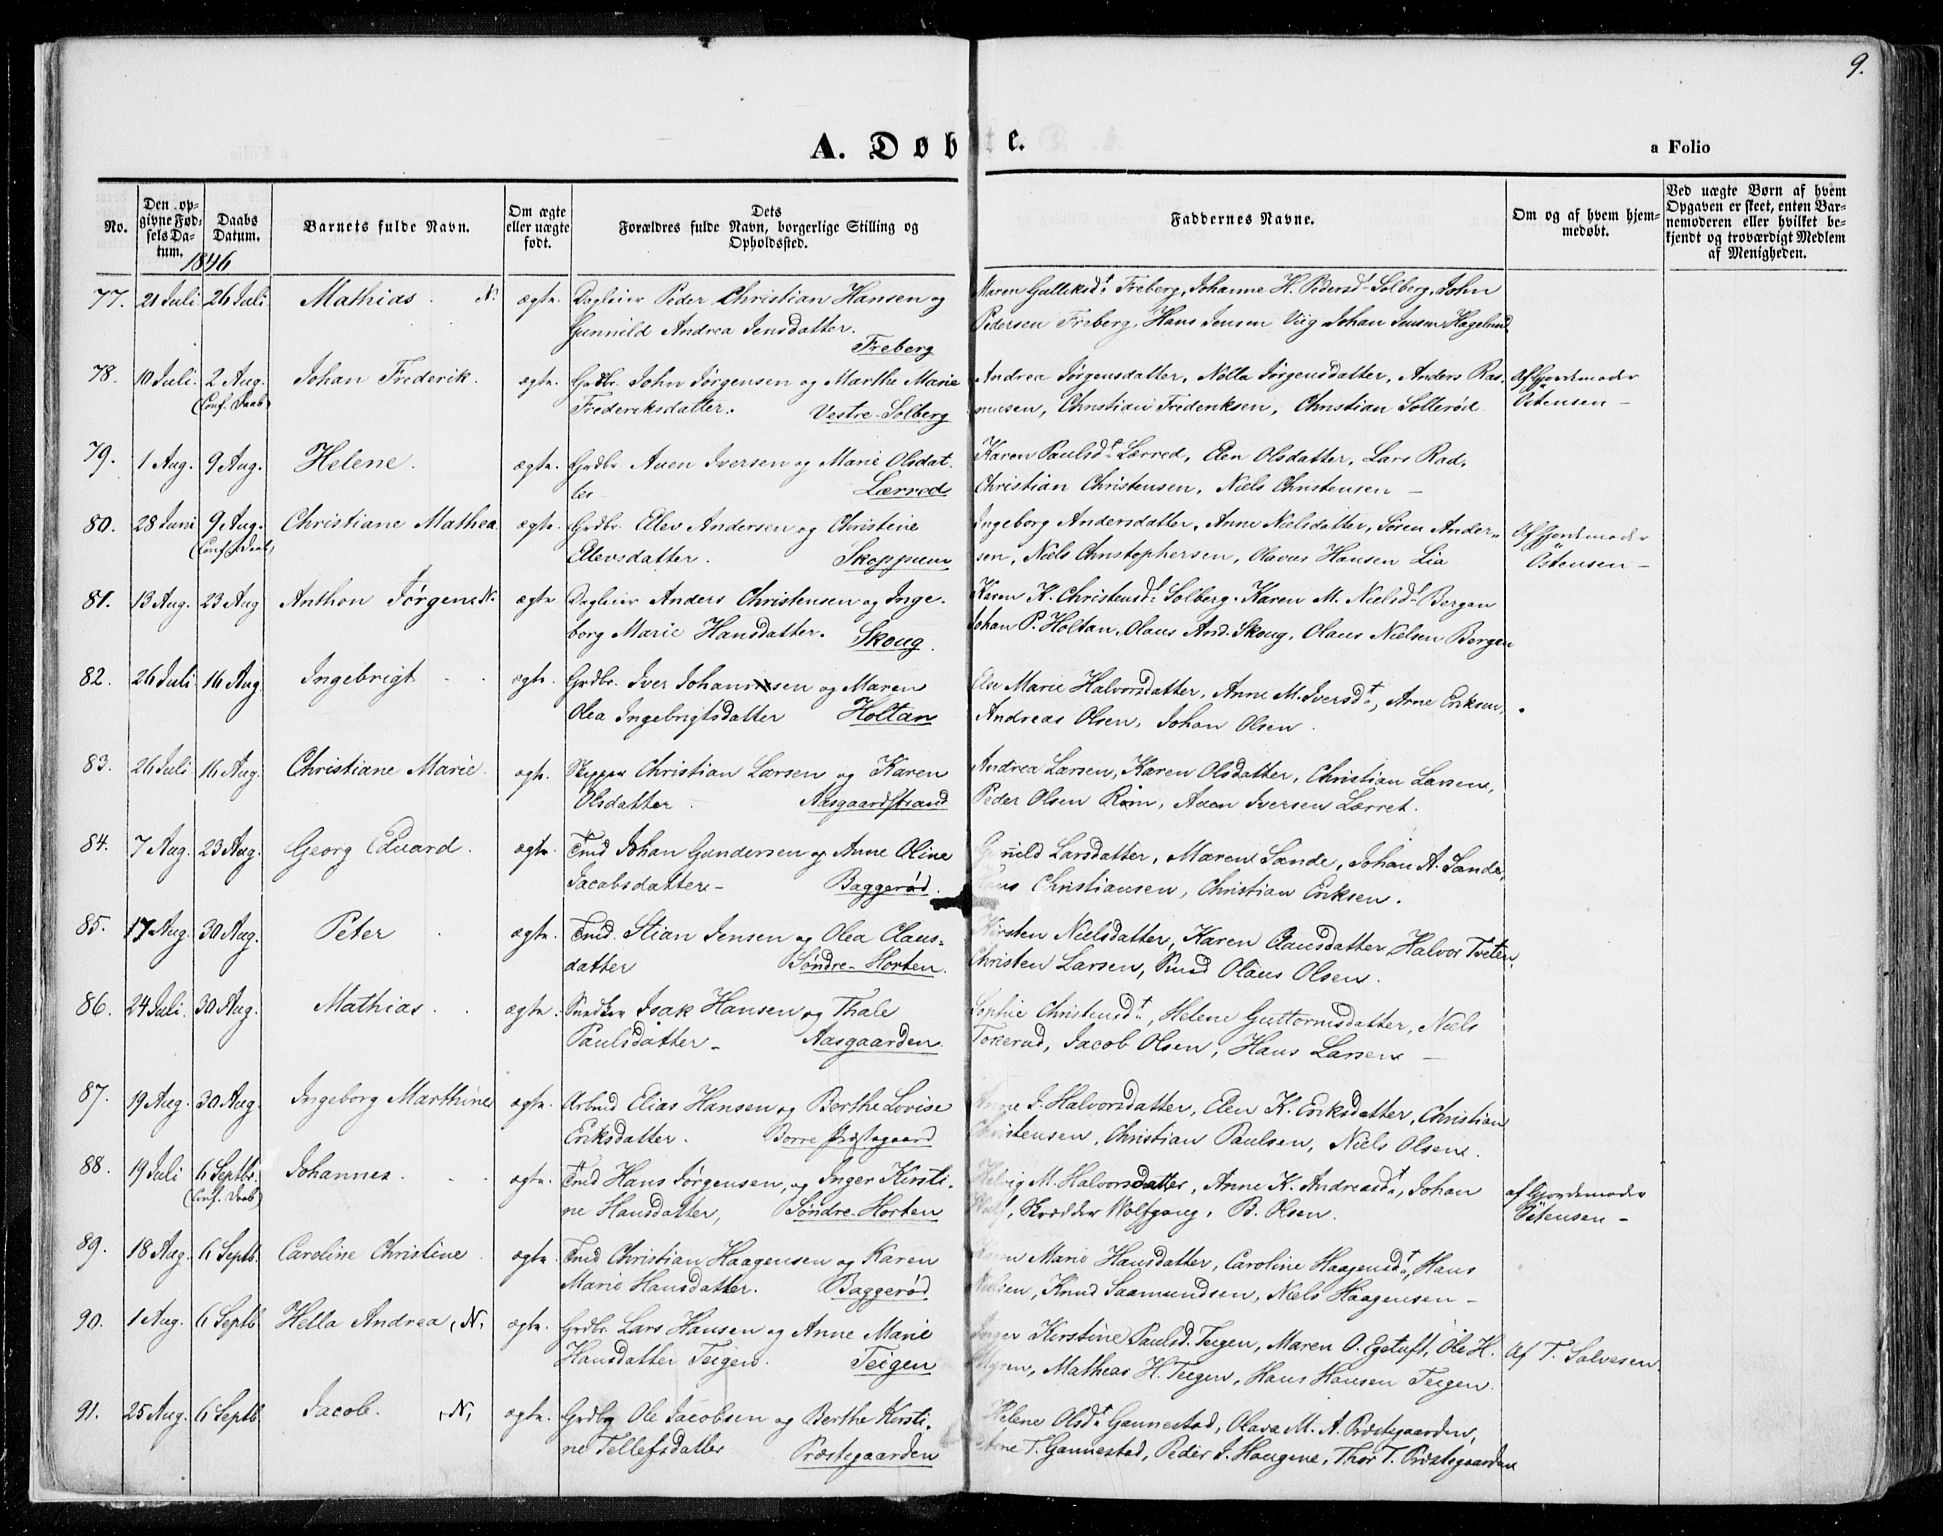 9.
A. Døbte.
a Folio
No.
Den opgivne Fødselsdatum.
Daabs Datum.
Barnets fulde Navn.
Om ægte eller uægte født.
Dets Forældres fulde Navn, borgerlige Stilling og Opholdssted.
Faddernes Navne.
Om og af hvem hjemmedøbt.
Ved uægte Børn af hvem Opgaven er skeet, enten Barnemoderen eller hvilket bekjendt og troværdigt Medlem af Menigheden.
1846
77. 21 Juli. 26 Juli. Mathias. N. ægte. Dagleier Peder Christian Hansen og Maren Galleksdt. Freberg, Johanne H. Pedersd. Solberg, John
Gunnild Andrea Jensdatter. Pedersen Freberg, Hans Jensen Viig Johan Jensen Hagelund
Freberg
78. 10 Juli. 2 Aug. Johan Frederik. ægte. Grdbr. John Jørgensen og Marthe Marie Andrea Jørgensdatter, Nolla Jørgensdatter, Anders Ras- Af Gjordemoder
(Conf. Daab) Frederiksdatter. Vestre-Solberg musen, Christian Frederiksen, Christian Solterød Østensen –
79. 1 Aug. 9 Aug. Helene. ægte. Grdbr Auen Iversen og Marie Olsdat- Karen Paulsdt. Lærred, Elen Olsdatter, Lars Rad,
ter – Lærred Christian Christensen, Niels Christensen –
80. 28 Juni 9 Aug. Christiane Mathea ægte. Grdbr. Elev Andersen og Christine Ingeborg Andersdatter, Anne Nielsdatter, Søren Ander- Af Gjordemoder
(Conf. Daab) Elevsdatter. Skoppum sen, Niels Christophersen, Olavus Hansen Lia Østensen –
81. 13 Aug. 23 Aug Anthon Jørgen. N. ægte Dagleier Anders Christensen og Inge- Karen K. Christensdt. Solberg. Karen M. Nielsd. Bergan
borg Marie Hansdatter. Skoug. Johan P. Holtan, Olaus And. Skoug, Olaus Nielsen Borgen
82. 26 Juli 16 Aug Ingebrigt ægte. Grdbr. Iver Johansen og Maren Else Marie Halvorsdatter, Anne M. Iversdt., Arne Eriksen,
Olea Ingebrigtsdatter Holtan Andreas Olsen, Johan Olsen.
83. 26 Juli 16 Aug. Christiane Marie. ægte. Skipper Christian Larsen og Karen Andrea Larsen, Karen Olsdatter, Christian Larsen,
Olsdatter. Aasgaardstrand Peder Olsen Røm, Auen Iversen Lærret.
84. 7 Aug. 23 Aug. Georg Eduard. ægte. Tmd Johan Gundersen og Anne Oline Gunild Larsdatter, Maren Sande, Johan A. Sande,
Jacobsdatter – Baggerød. Hans Christiansen, Christian Eriksen.
85. 17 Aug. 30 Aug. Peter ægte. Tmd. Stian Jensen og Olea Claus- Kirsten Nielsdatter, Karen Clausdatter, Halvor Tveten,
datter Søndre-Horten. Christen Larsen, Olaus Olsen.
86. 24 Juli. 30 Aug. Mathias. ægte. Snedker Isak Hansen og Thale Sophie Christensdt., Helene Guttormsdatter, Niels
Paulsdatter – Aasgaarden Tokerød, Jacob Olsen, Hans Larsen –
87. 19 Aug. 30 Aug. Ingeborg Marthine ægte. Arbmd Elias Hansen og Berthe Lovise Anne J. Halvorsdatter, Elen K. Eriksdatter, Christian
Eriksdatter. Borre Præstegaard Christensen, Christian Paulsen, Niels Olsen.
88. 19 Juli 6 Septbr. Johannes. ægte. Tmd Hans Jørgensen, og Inger Kirsti- Helvig M. Halvorsdatter, Anne K. Andreasdt., Johan af Gjordemoder
(Conf. Daab) ne Hansdatter, Søndre-Horten Skrædder Wolfgang, B. Olsen. Østensen –
89. 18 Aug. 6 Septb. Caroline Christine. ægte. Tmd Christian Haagensen og Karen Karen Marie Hansdatter, Caroline Haagensdt., Hans
Marie Hansdatter. Baggerød Nielsen, Knud Saamundsen, Niels Haagensen –
90. 1 Aug. 6 Septb Hella Andrea, N. ægte. Grdbr. Lars Hansen og Anne Marie Inger Kirstine Paulsd. Teigen, Maren O. Egetuft, Ole H. Af T. Salvesen.
Hansdatter Teigen. Teigen Myren, Mathias H. Teigen, Hans Hansen Teigen.
91. 25 Aug. 6 Septb Jacob. N. ægte. Grdbr Ole Jacobsen og Berthe Kirsti- Helene Olsdt. Gannestad, Olava M. A. Præstegaarden,
ne Tellefsdatter Præstegaarden Arne T. Gannestad, Peder J. Haugene, Thor T. Præstegaarden